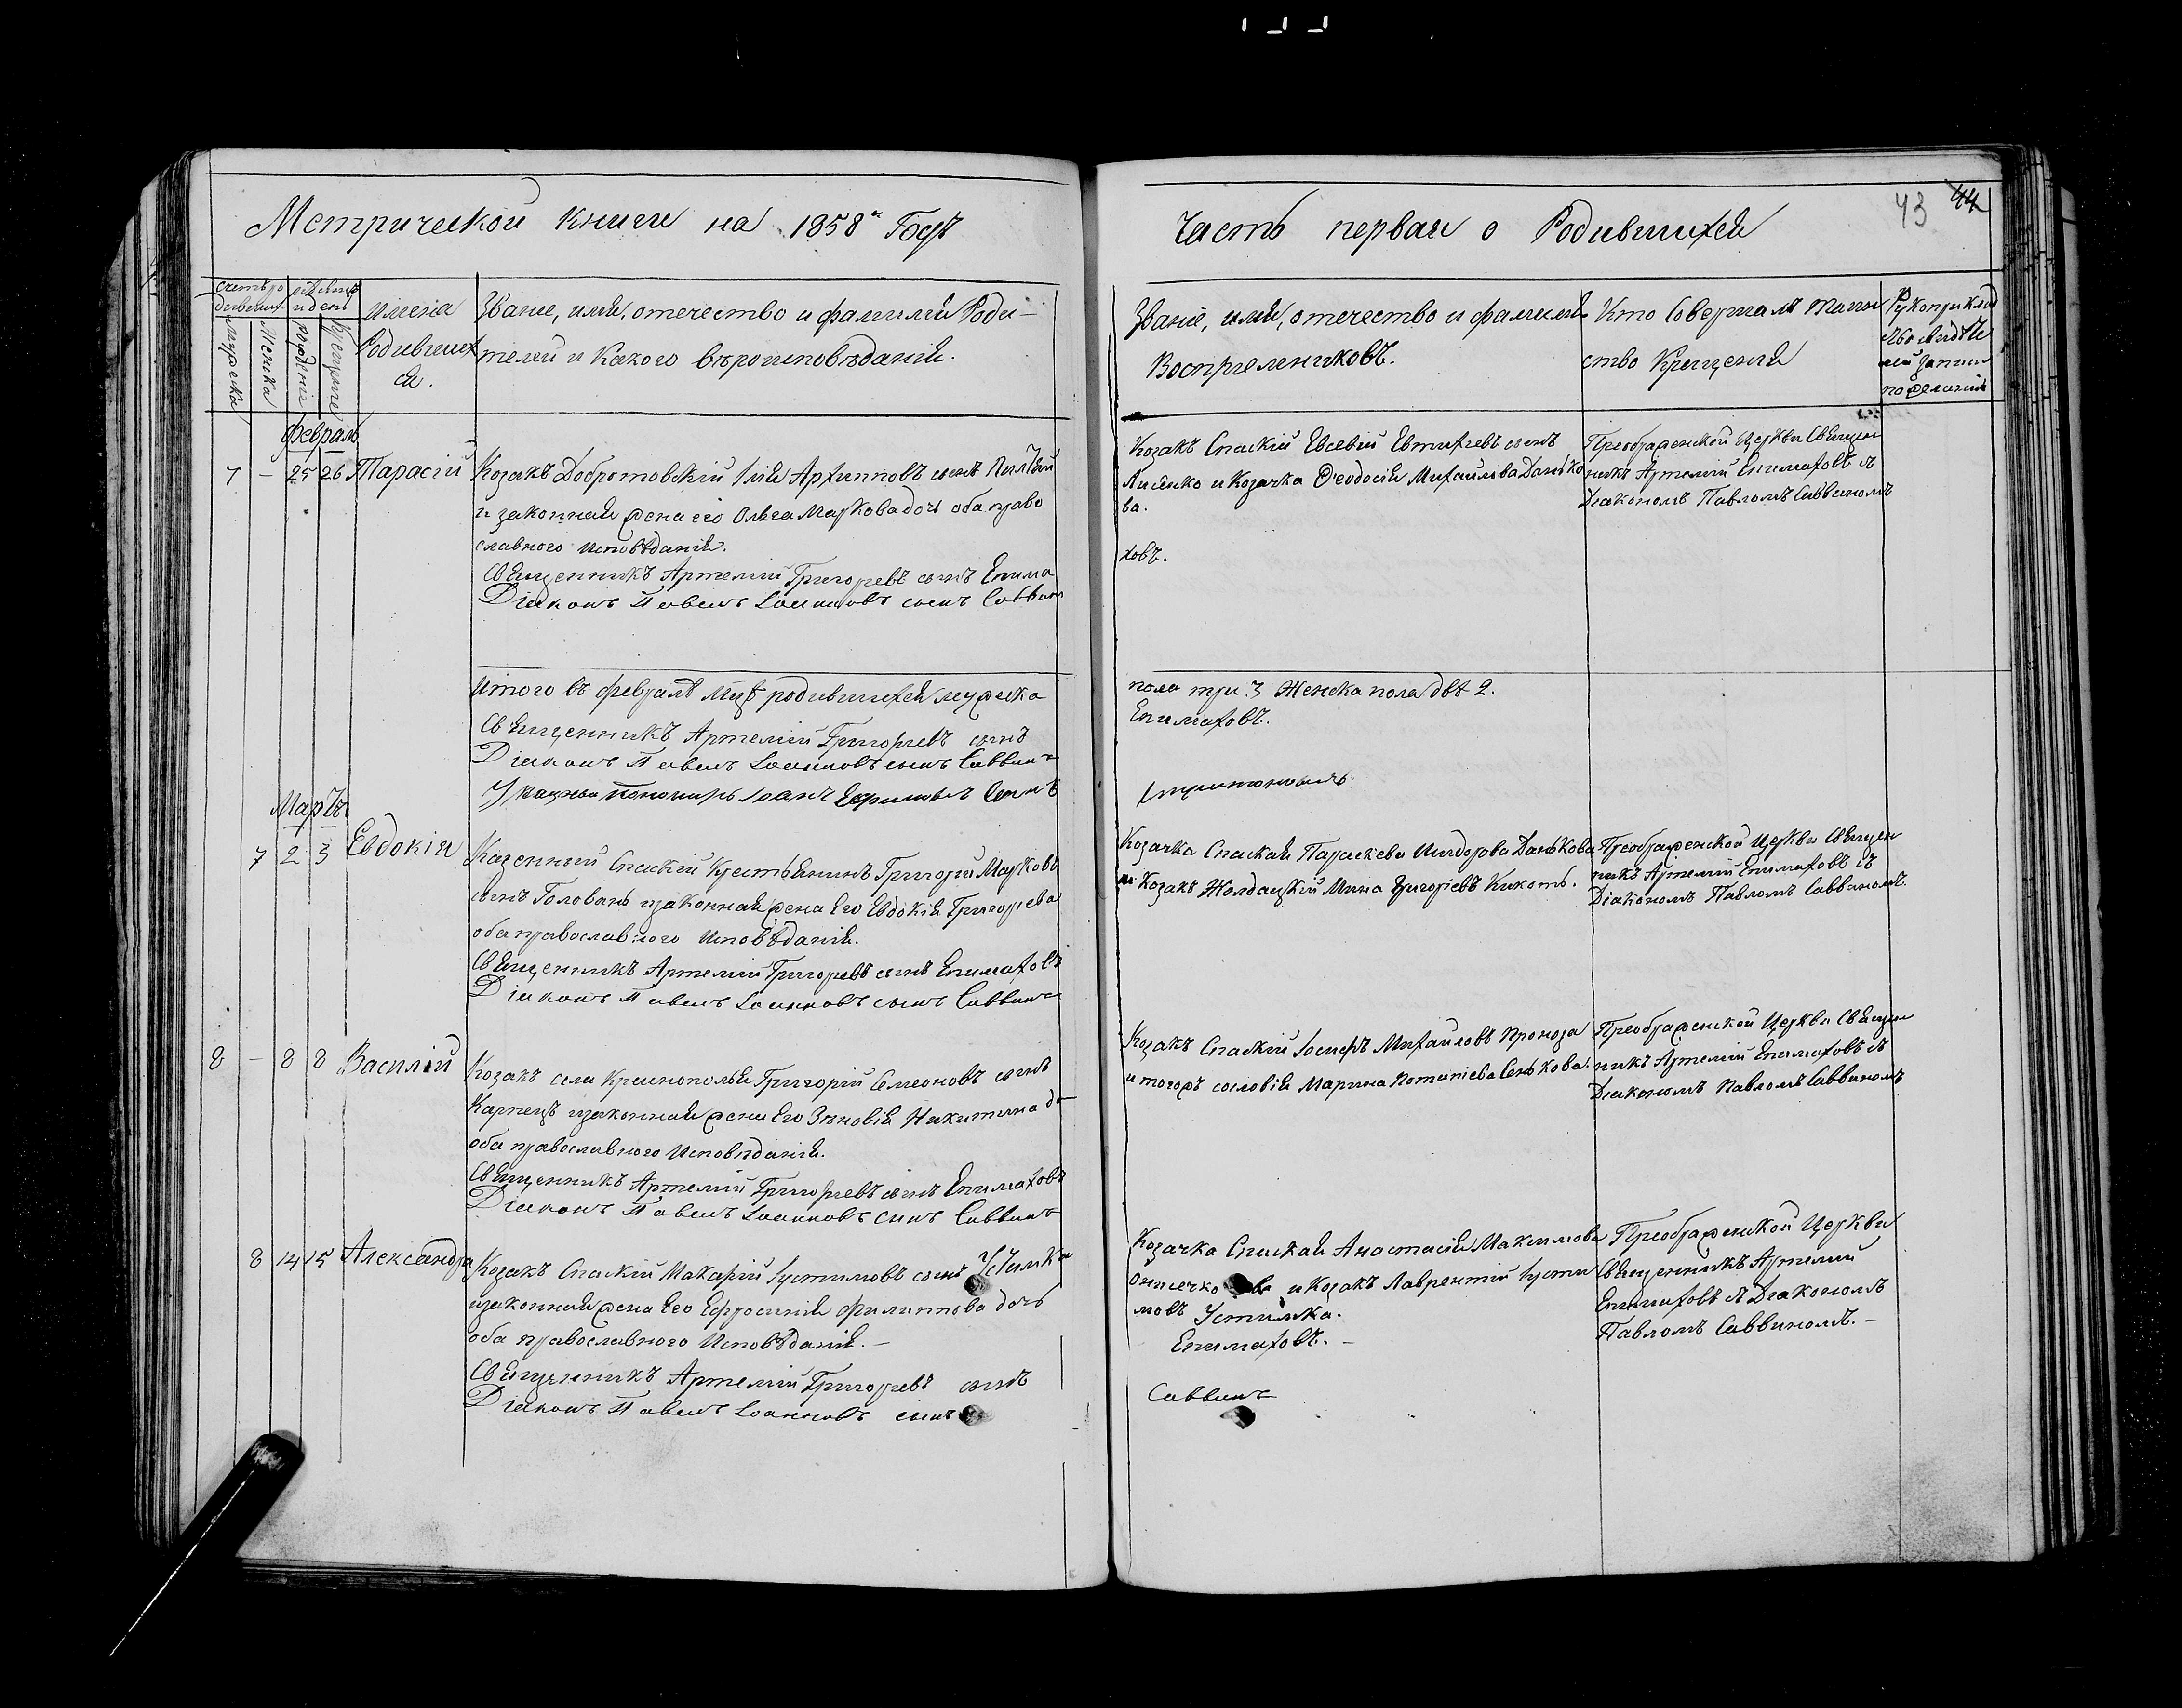 Метрической книги на 1858й Годъ
счетъ ро
дившихся
мужеска
женска
месяцъ
и день
рожденія
крещенія
имена
Родивших
ся.
Званіе, имя, отечество и фамилія Роди-
телей и какого вѣроисповѣданія.
февраль
7 - 25 26 Тарасій
Козакъ Добротовскій Ілія Архипповъ сынъ
и законная жена его Ольга Маркова дочь оба право
славного исповѣданія.
Священникъ Артемій Григорьевъ сынъ Епима
Діаконъ Павелъ Іоанновъ сынъ Саввинъ
Итого въ февралѣ мцѣ родившихся мужеска
Священникъ Артемій Григорьевъ сынъ
Діаконъ Павелъ Іоанновъ сынъ Саввинъ
пономарь Іоанъ
Мартъ
7 2 3 Евдокія
Казенный Спаскій Крестьянинъ Григорій Марковъ
сынъ Головань изаконная жена Его Евдокія Григорьева
оба православного исповѣданія.
Священникъ Артемій Григорьевъ сынъ Епимаховъ
Діаконъ Павелъ Іоанновъ сынъ Саввинъ
8 - 8 8 Василій
Козакъ села Краснополья Григорій Симеоновъ сынъ
Карпецъ изаконная жена Его Зѣновія Никитина до
оба православного исповѣданія.
Священникъ Артемій Григорьевъ сынъ Епимаховъ
Діаконъ Павелъ Іоанновъ сынъ Саввинъ
8 14 15 Александра
Козакъ Спаскій Макарій Іустимовъ сынъ Устимка
изаконная жена Его Ефросинія филиппова дочь
оба православного Исповѣданія. -
Священникъ Артемій Григорьевъ сынъ
Діаконъ Павелъ Іоанновъ сынъ
Часть первая о Родившихся
43 44
Званіе, имя, отечество и фамилія
Воспріемниковъ.
Кто Совершалъ таин
ство Крещенія
Рукоприклад
ство свидѣте
лей записи
по желанію
Козакъ Спаскій Евсевій Евтихіевъ сынъ
Лисенко и Козачка Ѳеодосія Михайлова Данько
ва.
ховъ.
Преображенской Церкви Священ
никъ Артемій Епимаховъ съ
Діакономъ Павломъ Саввиномъ
пола три. 3 Женска пола двѣ 2.
Епимаховъ.
Козачка Спаская Параскева Исидорова Данькова
и Козакъ Жолдацкій Мина Григоріевъ Кикоть.
Преображенской Церкви Священ
никъ Артемій Епимаховъ съ
Діакономъ Павломъ Саввиномъ.
Козакъ Спаскій Іосифъ Михайловъ Проноза
и тогожъ сословія Марина Потапіева Сенькова.
Преображенской Церкви Священ
никъ Артемій Епимаховъ съ
Діакономъ Павломъ Саввиномъ
Козачка Спаская Анастасія Максимова
и Козакъ Лаврентій Іусти
мовъ Устимка.
Епимаховъ. -
Саввинъ
Преображенской Церкви
Священникъ Артемій
Епимаховъ съ Діакономъ
Павломъ Саввиномъ. -